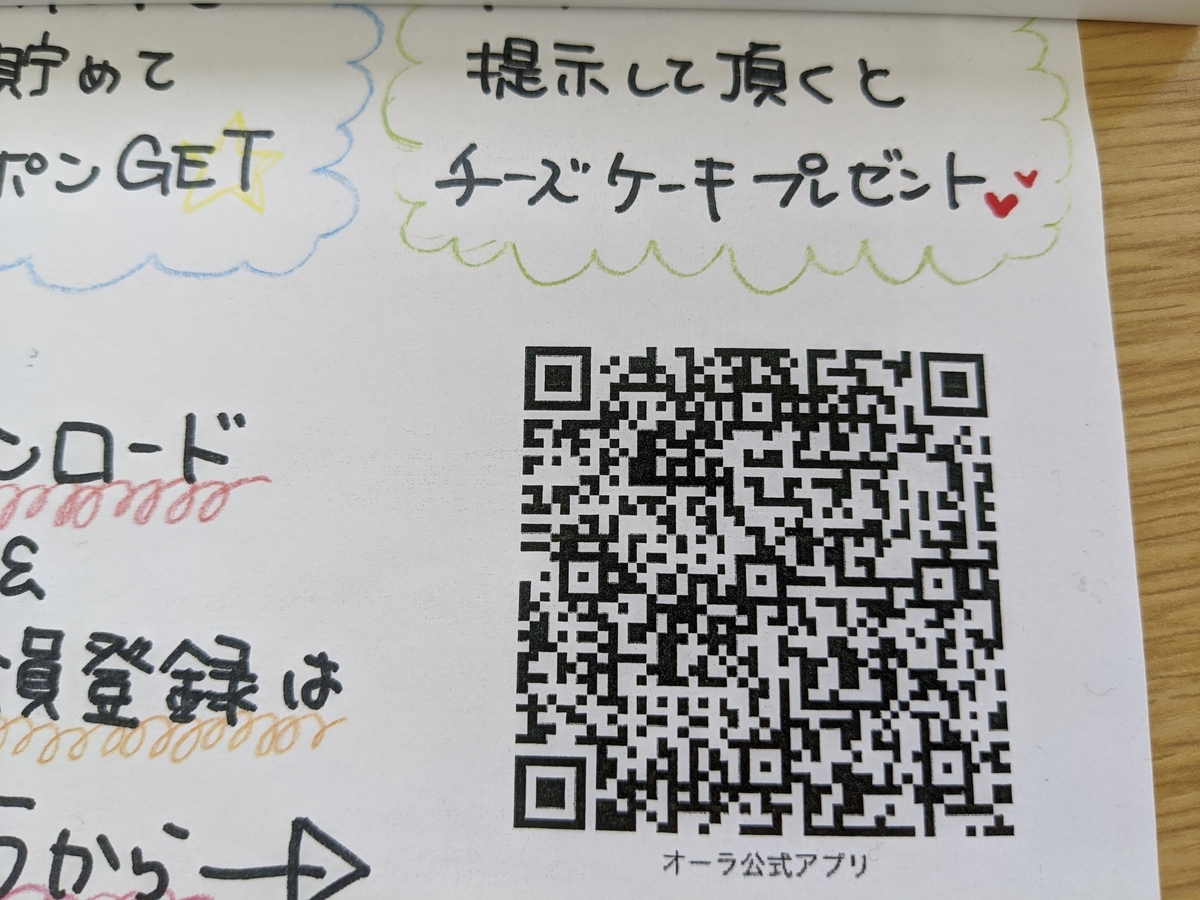 貯めて
ポンGET
提示して頂くと
チーズケーキプレゼント
ンロード
&
員登録は
らから→
オーラ公式アプリ